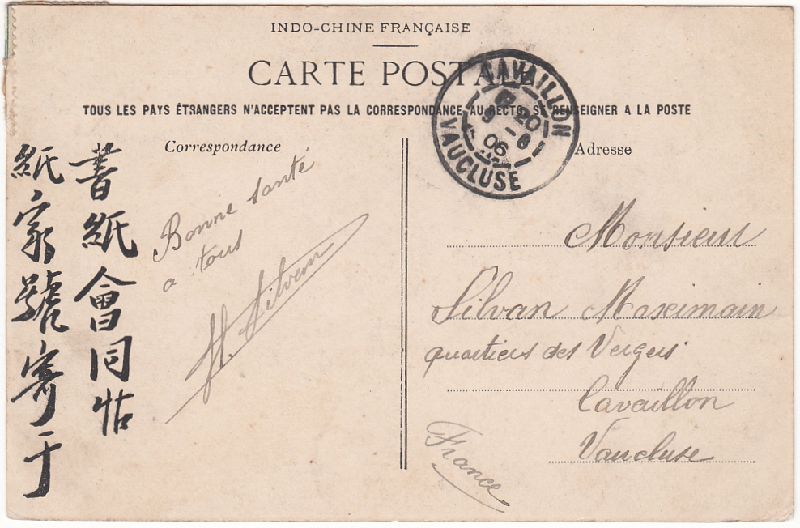 INDO-CHINE FRANÇAISE
CARTE POSTALE
TOUS LES PAYS ÉTRANGERS N'ACCEPTENT PAS LA CORRESPONDANCE AU RECTO. SE RENSEIGNER A LA POSTE
CAVAILLON
20
8 - 6
06
VAUCLUSE
Correspondance
Bonne santé
a tous
H. Silvan
Adresse
Monsieur
Silvan Maximain
quartiers des Vergers
Cavaillon
Vaucluse
France
書紙會同帖
紙家號寄于